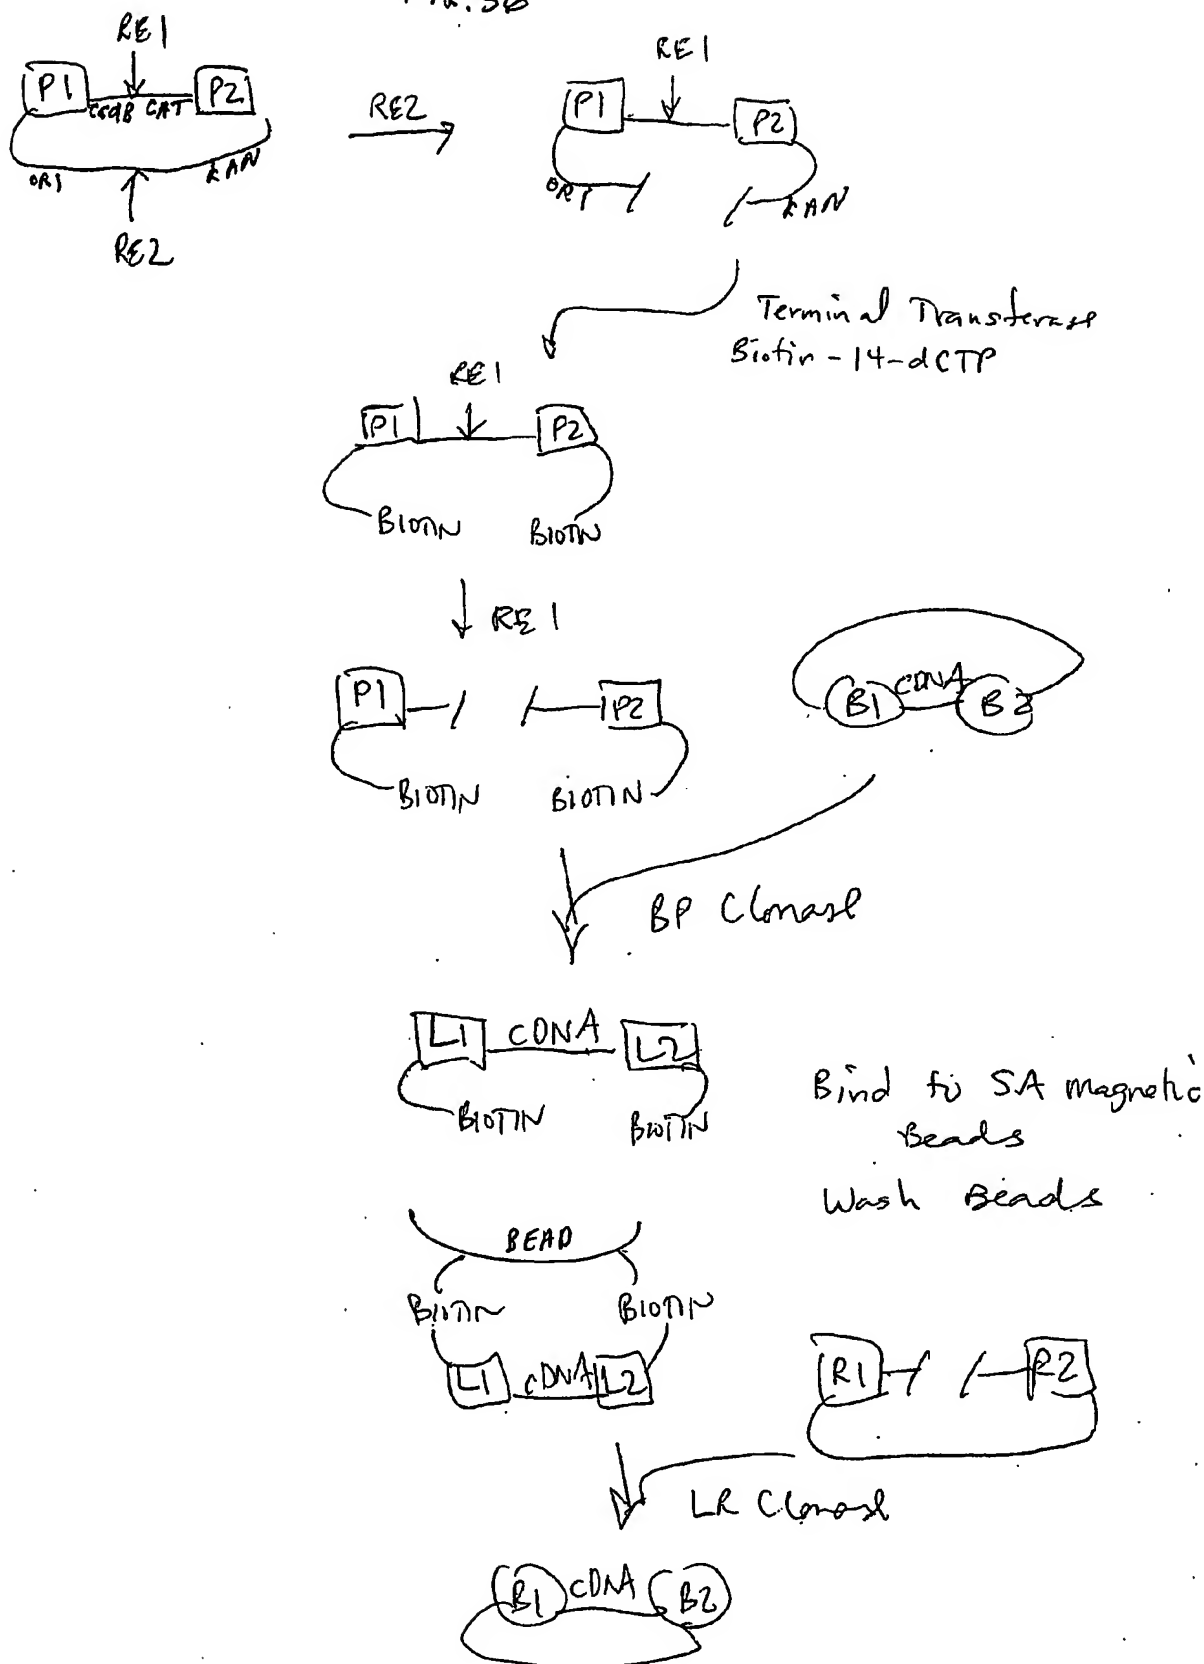 FIG. 3B
RE1
P1 P2
ccdB CAT
ORI KAN
RE2
RE2
RE1
P1 P2
ORI KAN
Terminal Transferase
Biotin-14-dCTP
RE1
P1 P2
BIOTIN BIOTIN
RE1
P1 P2
BIOTIN BIOTIN
B1 cDNA B2
BP Clonase
L1 cDNA L2
BIOTIN BIOTIN
Bind to SA magnetic
Beads
Wash Beads
BEAD
BIOTIN BIOTIN
L1 cDNA L2
R1 R2
LR Clonase
B1 cDNA B2